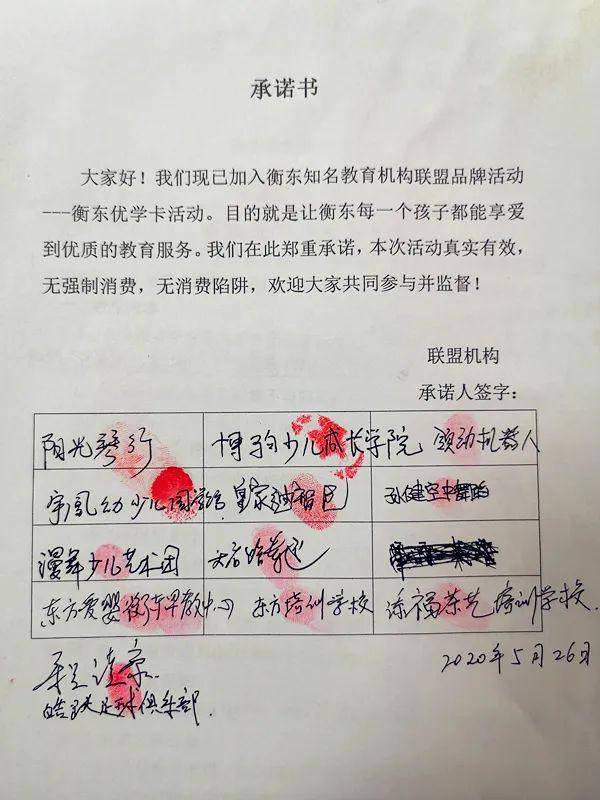 承诺书
大家好！我们现已加入衡东知名教育机构联盟品牌活动
---衡东优学卡活动。目的就是让衡东每一个孩子都能享爱
到优质的教育服务。我们在此郑重承诺，本次活动真实有效，
无强制消费，无消费陷阱，欢迎大家共同参与并监督！
联盟机构
承诺人签字：
阳光琴行
少儿成长学院
颂动机器人
皇家迪智尼
漫舞少儿艺术团
东方爱婴衡东早教中心
东方培训学校
福茶艺培训学校
2020年5月26日
足球俱乐部